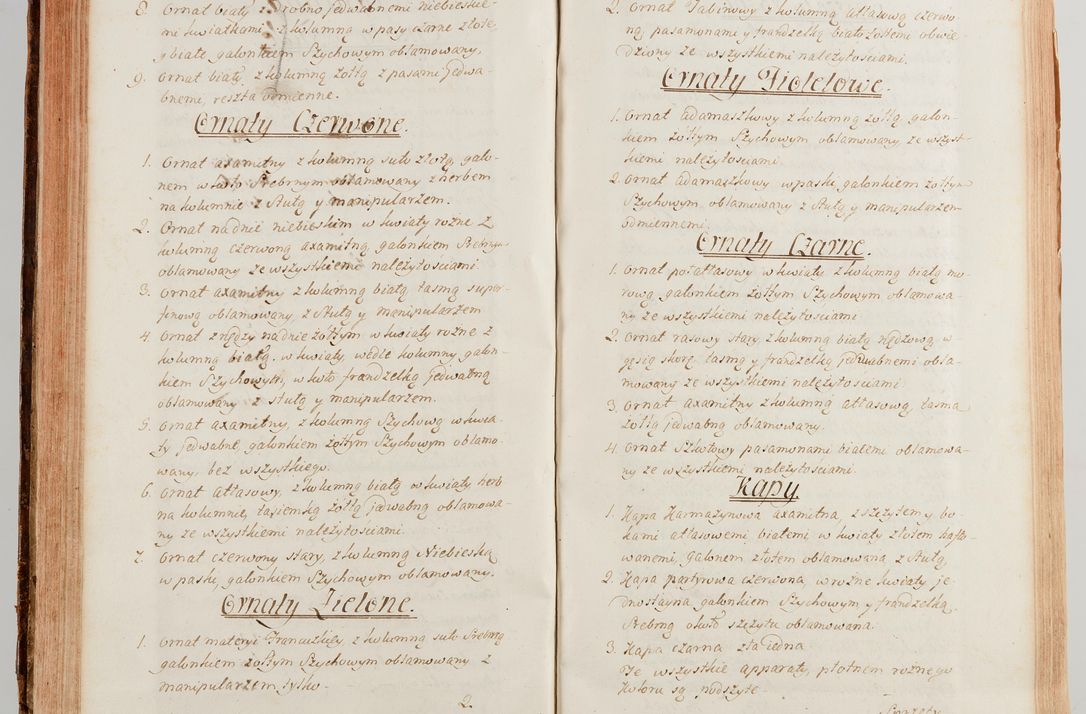 8. Ornat biały z drobno jedwabnemi niebieskie-
mi kwiatkami, z kolumną w pasy czarne złote,
y białe galonkiem Szychowym oblamowany,
9. Ornat biały z kolumną żołtą z pasami jedwa-
bnemi, reszta odmienne.
Ornaty Czerwone.
1. Ornat axamitny z kolumną suto złotą, galo-
nem w suto Srebrnym oblamowany z herbem
na kolumnie z Stułą y manipularzem.
2. Ornat na dnie niebieskim w kwiaty rożne z
kolumną czerwoną axamitną, galonkiem Srebrnym
oblamowany ze wszystkiemi należytościami.
3. Ornat axamitny z kolumną białą tasmą super-
finową oblamowany, z Stułą y manipularzem
4. Ornat z nędzy na dnie żołtym w kwiaty rożne z
kolumną białą w kwiaty, wedle kolumny galon-
kiem Szychowym, w koło frandzelką jedwabną
oblamowany z stułą y manipularzem.
5. Ornat axamitny, z kolumną Szychową w kwia-
ty jedwabne, galonkiem żołtym Szychowym oblamo-
wany, bez wszystkiego.
6. Ornat atłasowy, z kolumną białą w kwiaty herb
na kolumnie, tasiemką żołtą jedwabną oblamowa-
ny ze wszystkiemi należytościami.
7. Ornat czerwony stary, z kolumną Niebieską
w paski, galonkiem Szychowym oblamowany.
Ornaty Zielone.
1. Ornat materyi Francuzkiey, z kolumną suto Srebrną
galonkiem żołtym Szychowym oblamowany z
manipularzem tylko.
2.
2. Ornat Tabinowy z kolumną atłasową czerwo
ną, pasamonami y frandzelką biało żołtemi obwie-
dziony ze wszystkiemi należytościami.
Ornaty Fioletowe.
1. Ornat adamaszkowy z kolumną żołtą galon-
kiem żołtym Szychowym oblamowany ze wszyst-
kiemi należytościami.
2. Ornat adamaszkowy w paski, galonkiem żołtym
Szychowym, oblamowany z Stułą y manipularzem
odmiennemi.
Ornaty Czarne.
1. Ornat połatłasowy w kwiaty z kolumną białą mo-
rową, galonkiem żołtym Szychowym oblamowa-
ny ze wszystkiemi należytościami.
2. Ornat rasowy stary z kolumną białą nędzową, w
gęsią skorę tasmą y frandzelką jedwabnemi obla-
mowany ze wszystkiemi należytościami.
3. Ornat axamitny z kolumną atłasową, tasmą
żołtą jedwabną oblamowany.
4. Ornat Szkotowy pasamonami białemi oblamowa-
ny ze wszystkiemi należytościami.
Kapy.
1. Kapa Karmazynowa axamitna, z szczytem y bo-
kami atłasowemi, białemi w kwiaty złotem hafto-
wanemi, galonem złotem oblamowana z Stułą,
2. Kapa partyrowa czerwona w rożne kwiaty je-
dnostayna galonkiem Szychowym, y frandzelką,
Srebrną około szczytu oblamowana.
3. Kapa czarna zła jedna
Te wszystkie apparaty, płotnem rożnego
koloru są podszyte.